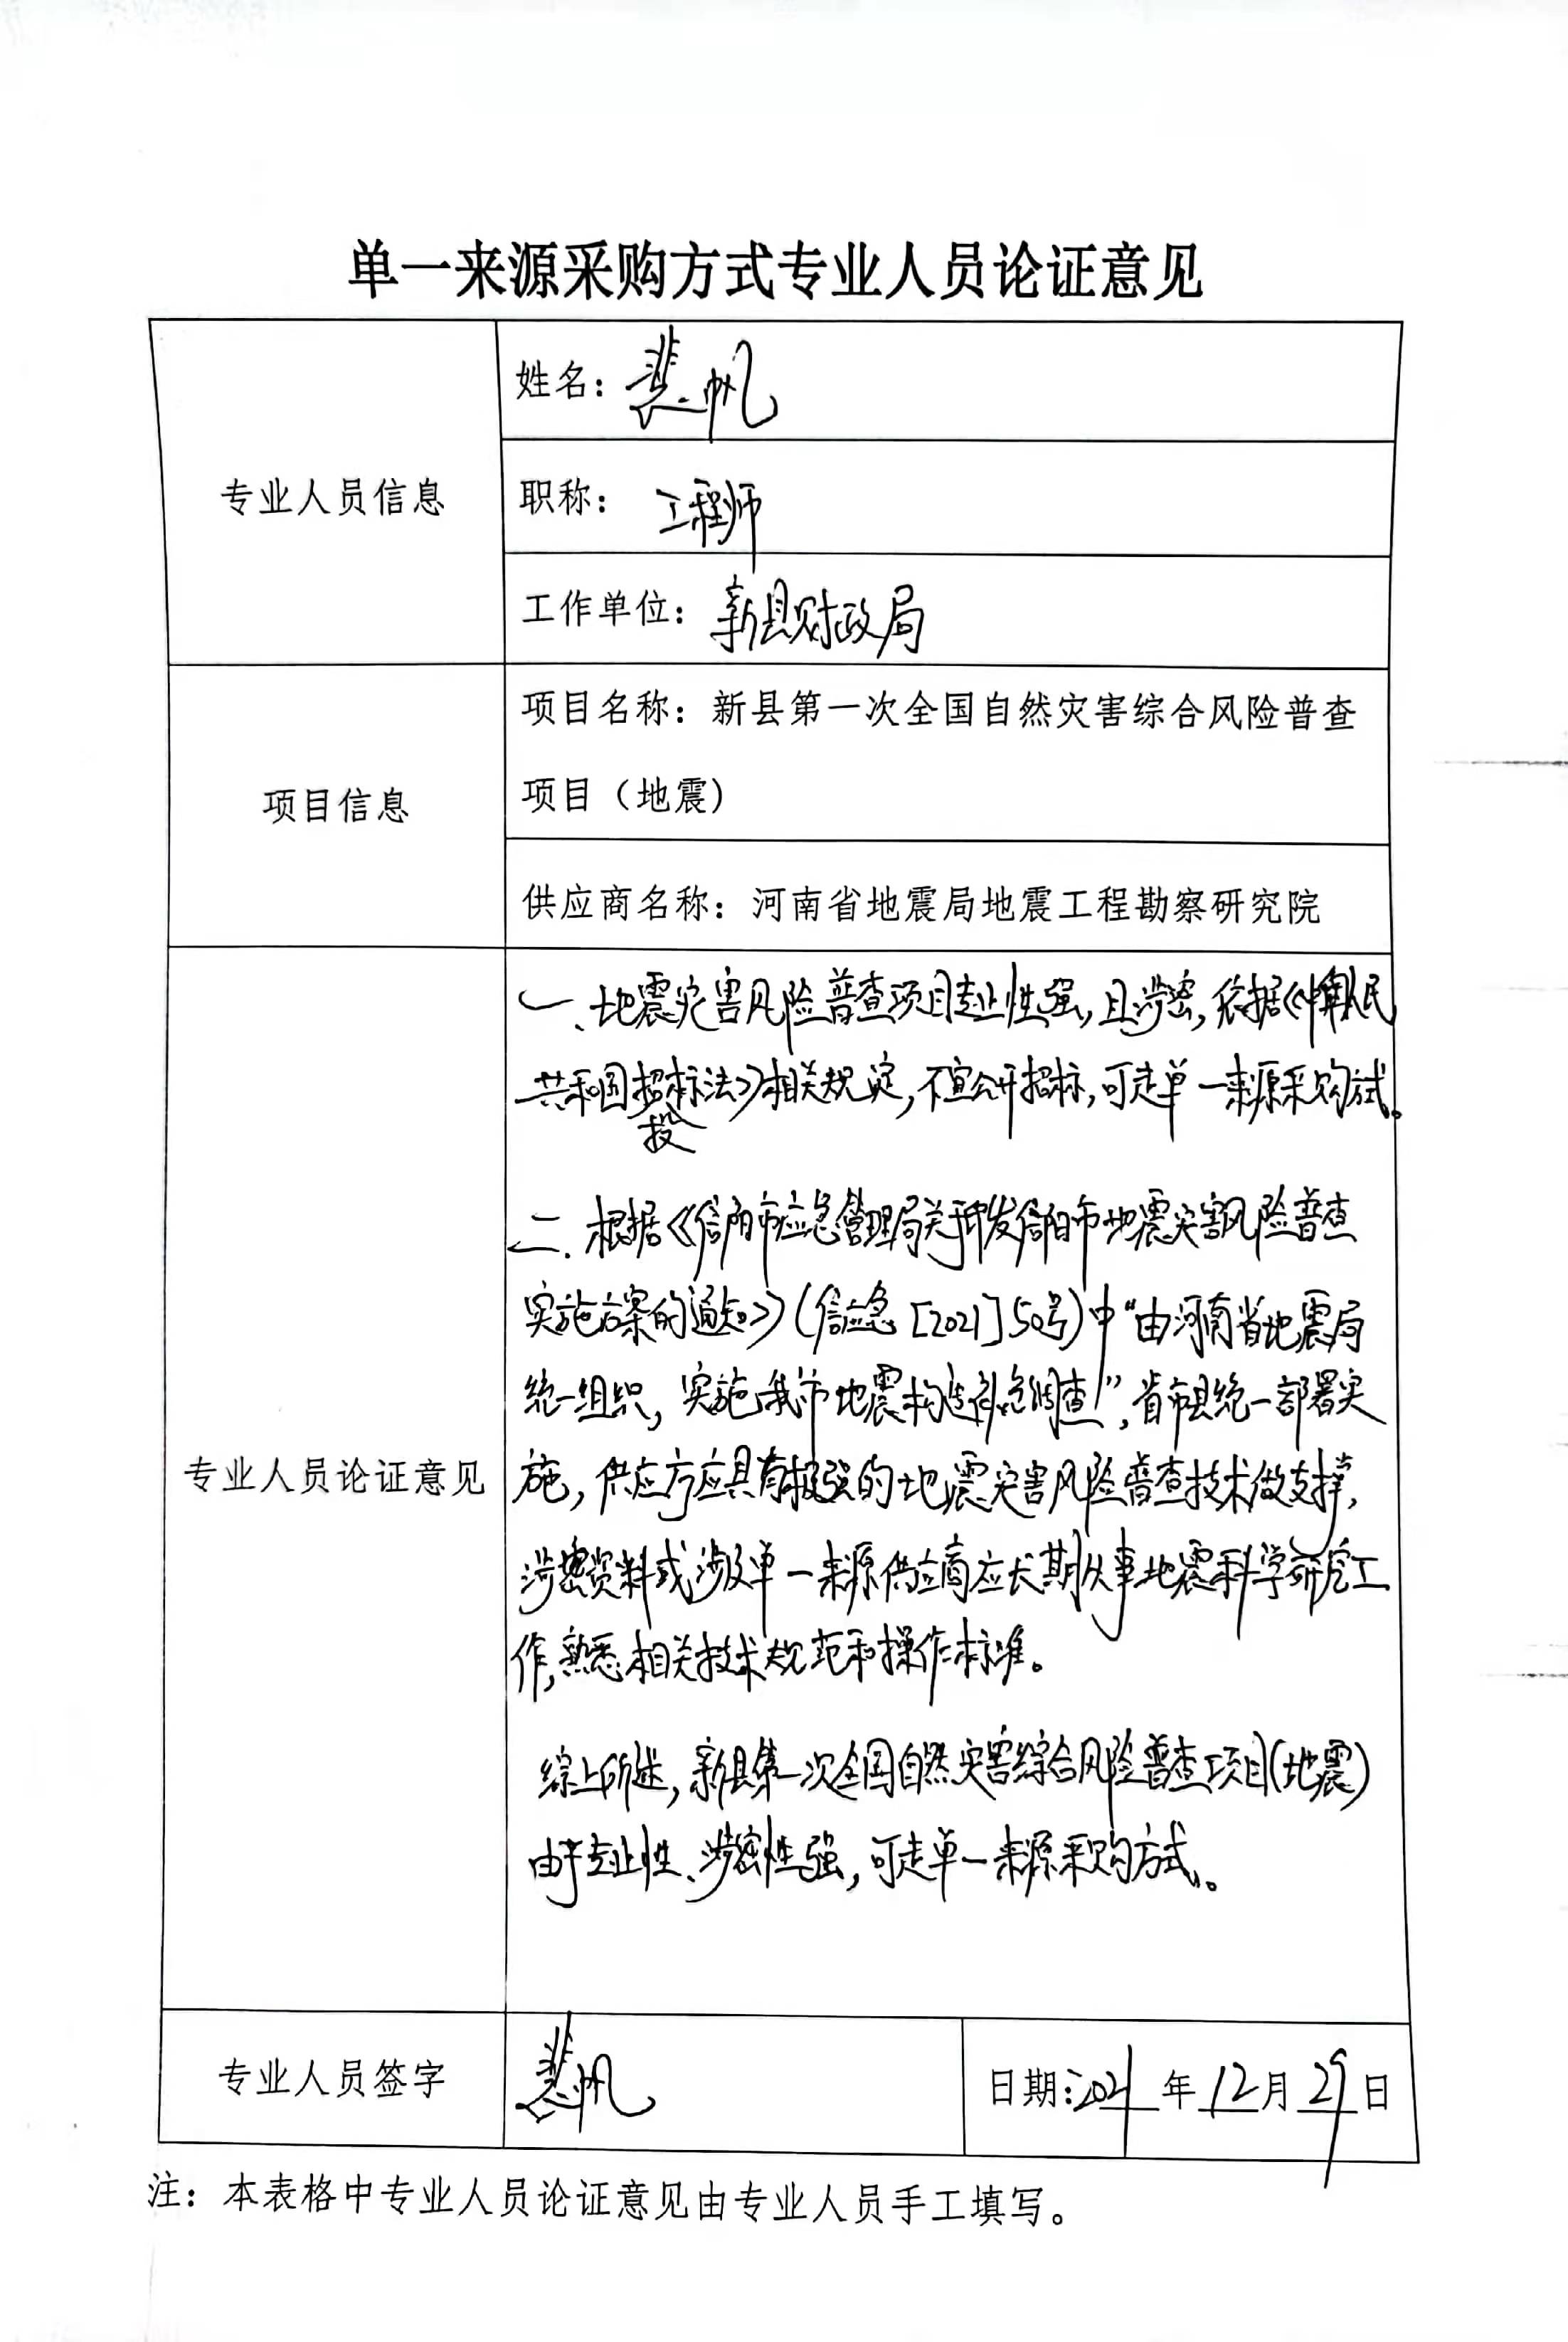 单一来源采购方式专业人员论证意见
专业人员信息
姓名：裴帆
职称：工程师
工作单位：新县财政局
项目信息
项目名称：新县第一次全国自然灾害综合风险普查
项目（地震）
供应商名称：河南省地震局地震工程勘察研究院
专业人员论证意见
一、地震灾害风险普查项目专业性强，且涉密，依据《中华人民
共和国招投标法》相关规定，不宜公开招标，可走单一来源采购方式。
二、根据《信阳市应急管理局关于印发信阳市地震灾害风险普查
实施方案的通知》（信应急［2021］50号）中“由河南省地震局
统一组织，实施我市地震构造调查”，省市县统一部署实
施，供应方应具有极强的地震灾害风险普查技术做支撑，
涉密资料或涉及单一来源供应商应长期从事地震科学研究工
作，熟悉相关技术规范和操作标准。
综上所述，新县第一次全国自然灾害综合风险普查项目（地震）
由于专业性、涉密性强，可走单一来源采购方式。
专业人员签字
裴帆
日期：2021年12月29日
注：本表格中专业人员论证意见由专业人员手工填写。